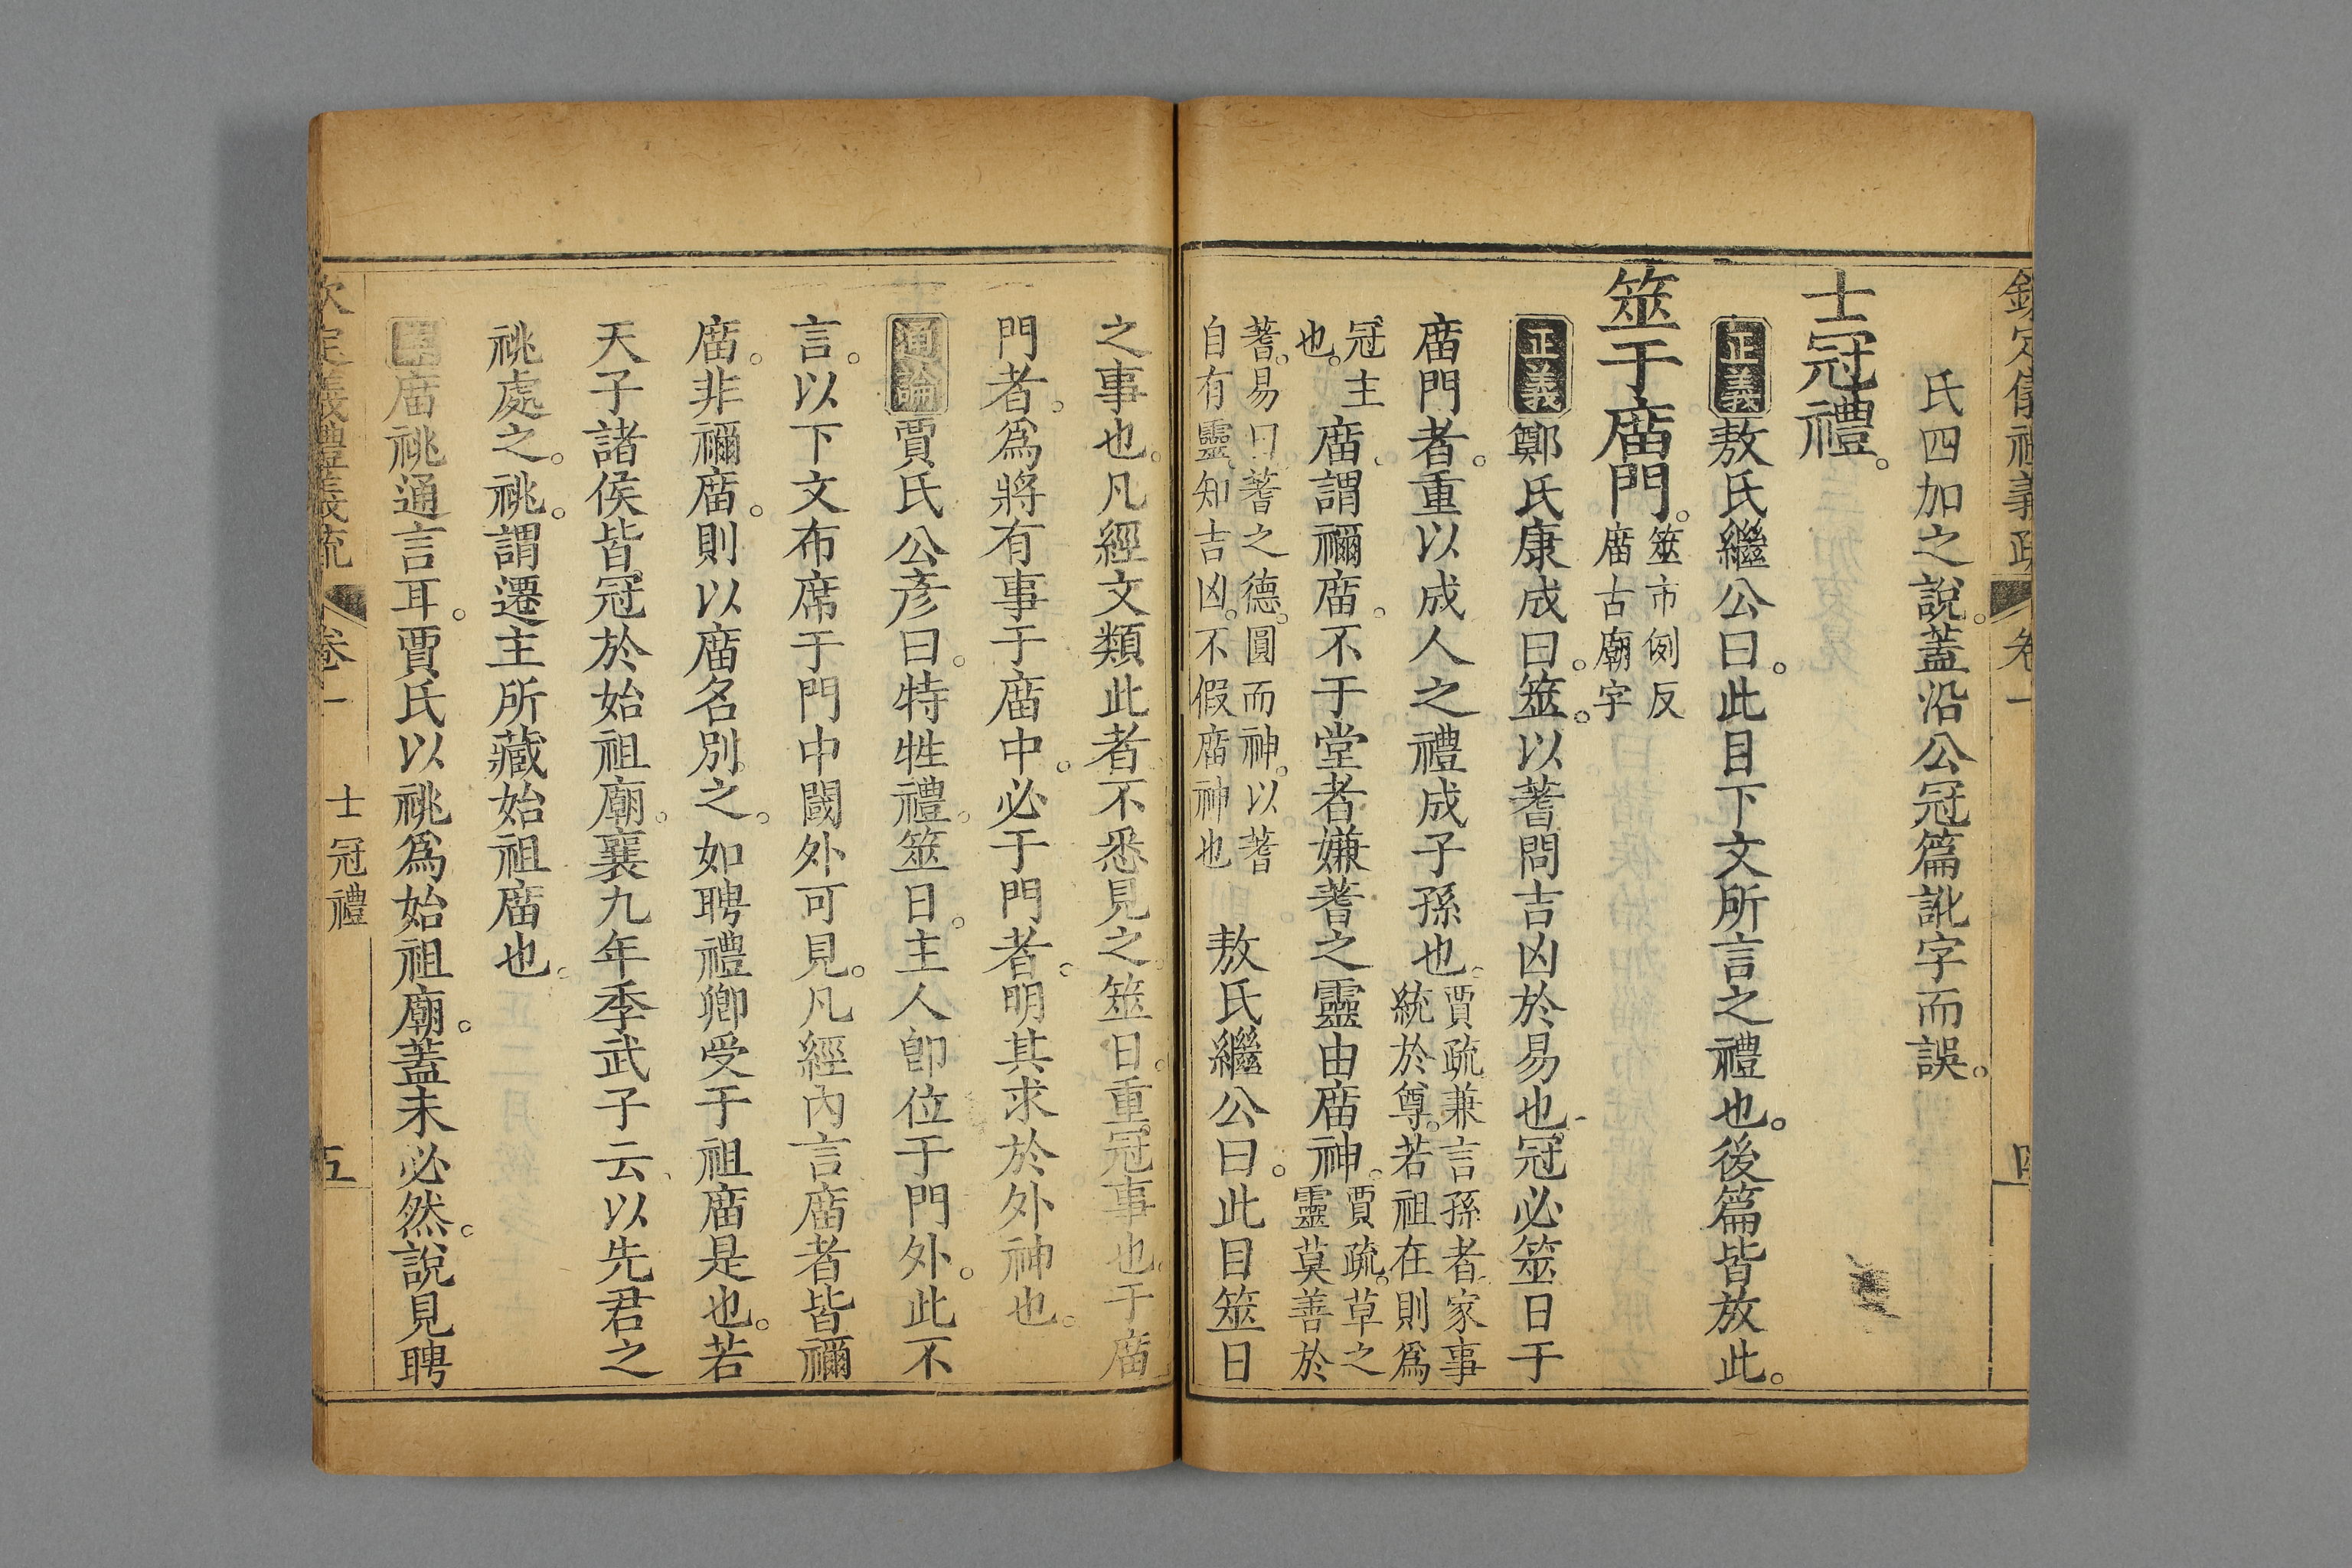 欽定儀禮義疏 卷一 四
氏四加之說。蓋沿公冠篇訛字而誤。
士冠禮。
正義敖氏繼公曰。此目下文所言之禮也。後篇皆放此。
筮于庿門。筮市例反
庿古廟字
正義鄭氏康成曰。筮。以蓍問吉凶於易也。冠必筮日于
庿門者。重以成人之禮成子孫也。賈疏兼言孫者家事
統於尊。若祖在則爲
冠主
也。庿謂禰庿。不于堂者嫌蓍之靈由庿神。賈疏。草之
靈莫善於
蓍。易曰蓍之德。圓而神。以蓍
自有靈知吉凶。不假庿神也 敖氏繼公曰。此目筮日
之事也。凡經文類此者不悉見之。筮日。重冠事也。于庿
門者。爲將有事于庿中。必于門者。明其求於外神也。
通論賈氏公彥曰。特牲禮。筮日。主人卽位于門外。此不
言。以下文布席于門中闑外可見。凡經內言庿者皆禰
庿。非禰庿。則以庿名別之。如聘禮卿受于祖庿是也。若
天子諸侯皆冠於始祖廟。襄九年季武子云、以先君之
祧處之。祧。謂遷主所藏始祖庿也。
庿祧通言耳。賈氏以祧爲始祖廟。蓋未必然。說見聘
欽定儀禮義疏 卷一 士冠禮 五